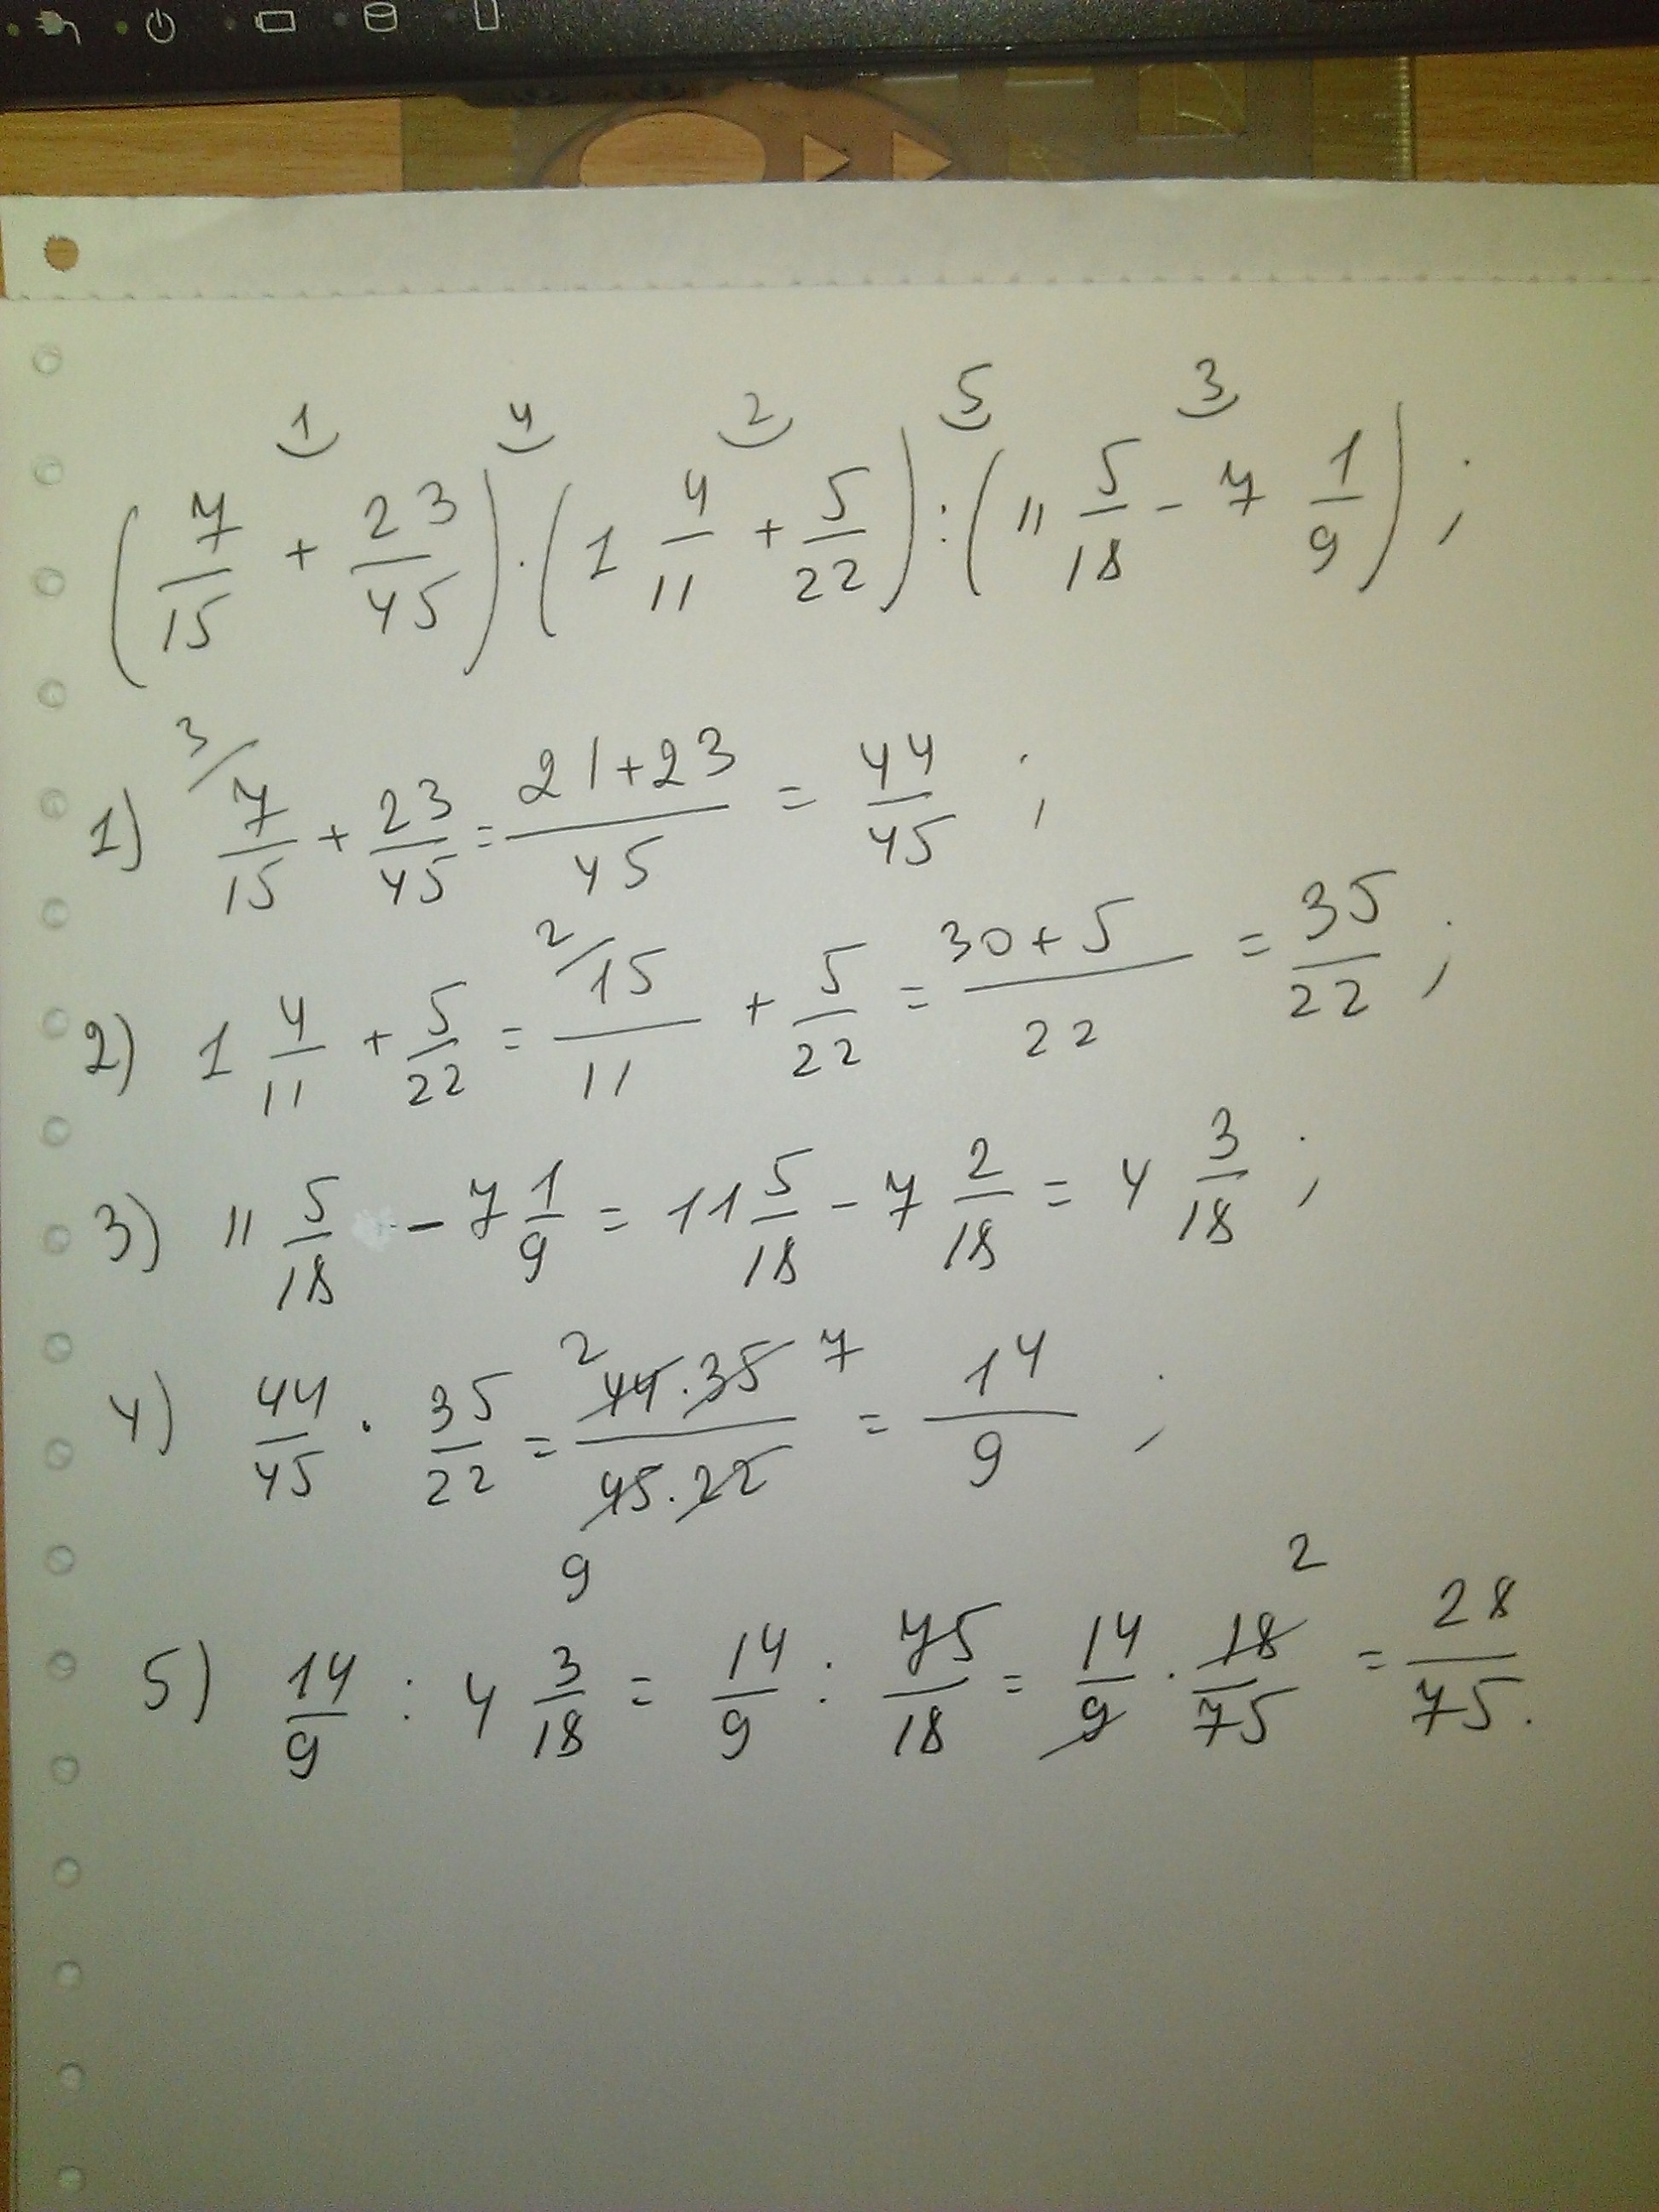 1 4 2 5 3
(7/15 + 23/45) · (1 4/11 + 5/22) : (11 5/18 - 7 1/9) ;
1) 3/ 7/15 + 23/45 = 21+23/45 = 44/45 ;
2) 1 4/11 + 5/22 = 2/ 15/11 + 5/22 = 30+5/22 = 35/22 ;
3) 11 5/18 - 7 1/9 = 11 5/18 - 7 2/18 = 4 3/18 ;
4) 44/45 · 35/22 = 2 44·35 7/9 45·22 = 14/9 ;
5) 14/9 : 4 3/18 = 14/9 : 75/18 = 14/9 · 18 2/75 = 28/75.